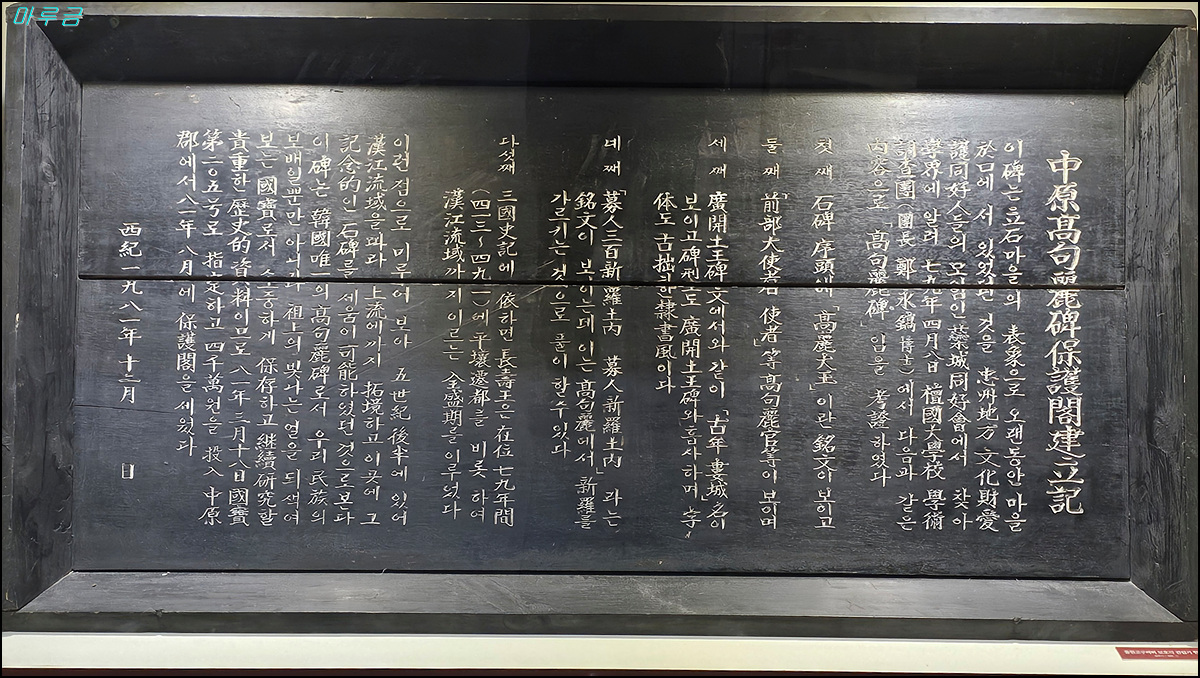 마루금
中原高句麗碑保護閣建立記
이 碑는 立石마을의 表象으로 오랜동안 마을
於口에 서 있었던 것을 忠州地方 文化財愛
護同好人들의 모임인 蘂城同好會에서 찾아
學界에 알려 七九年 四月 八日 檀國大學校 學術
調査團(團長 鄭永鎬 博士)에서 다음과 같은
內容으로 「高句麗碑」임을 考證하였다
첫째 石碑 序頭에 「高麗大王」이란 銘文이 보이고
둘째 「前部大使者」「使者」等 高句麗官等이 보이며
세째 廣開土王碑文에서와 같이 「古牟婁城」名이
보이고 碑型도 廣開土王碑와 흡사하며 字
体도 古拙한 隸書風이다
네째 「募人三百新羅土內」「募人新羅土內」라는
銘文이 보이는데 이는 高句麗에서 新羅를
가르키는 것으로 풀이 할 수 있다
다섯째 三國史記에 依하면 長壽王은 在位 七九年間
(四一三~四九一)에 平壤遷都를 비롯하여
漢江流域까지 이르는 全盛期를 이루었다
이런 점으로 미루어 보아 五世紀 後半에 있어
漢江流域을 따라 上流에까지 拓境하고 이곳에 그
記念的인 石碑를 세움이 可能하였던 것으로 본다
이 碑는 韓國唯一의 高句麗碑로서 우리 民族의
보배일뿐만 아니라 祖上의 빛나는 얼을 되색여
보는 國寶로서 소중하게 保存하고 繼續研究할
貴重한 歷史的 資料이므로 八一年 三月 十八日 國寶
第二0五号로 指定하고 四千萬원을 投入 中原
郡에서 八一年 八月에 保護閣을 세웠다
西紀一九八一年 十二月 日